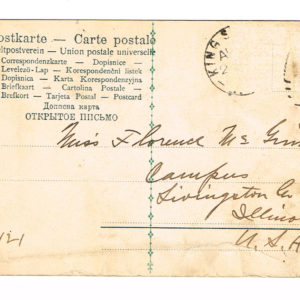 ostkarte — Carte postale
eltpostverein — Union postale universelle
Correspondenzkarte — Dopisnice —
Levelezö-Lap — Korespondenční lístek
Dopisnica — Karta Korespondencyjna
Briefkaart — Cartolina Postale —
Brefkort — Tarjeta Postal — Postcard
Дописна карта
ОТКРЫТОЕ ПИСЬМО
KING S
Miss Florence Mc
Campus
Livingston Co
Illino
U. S. A